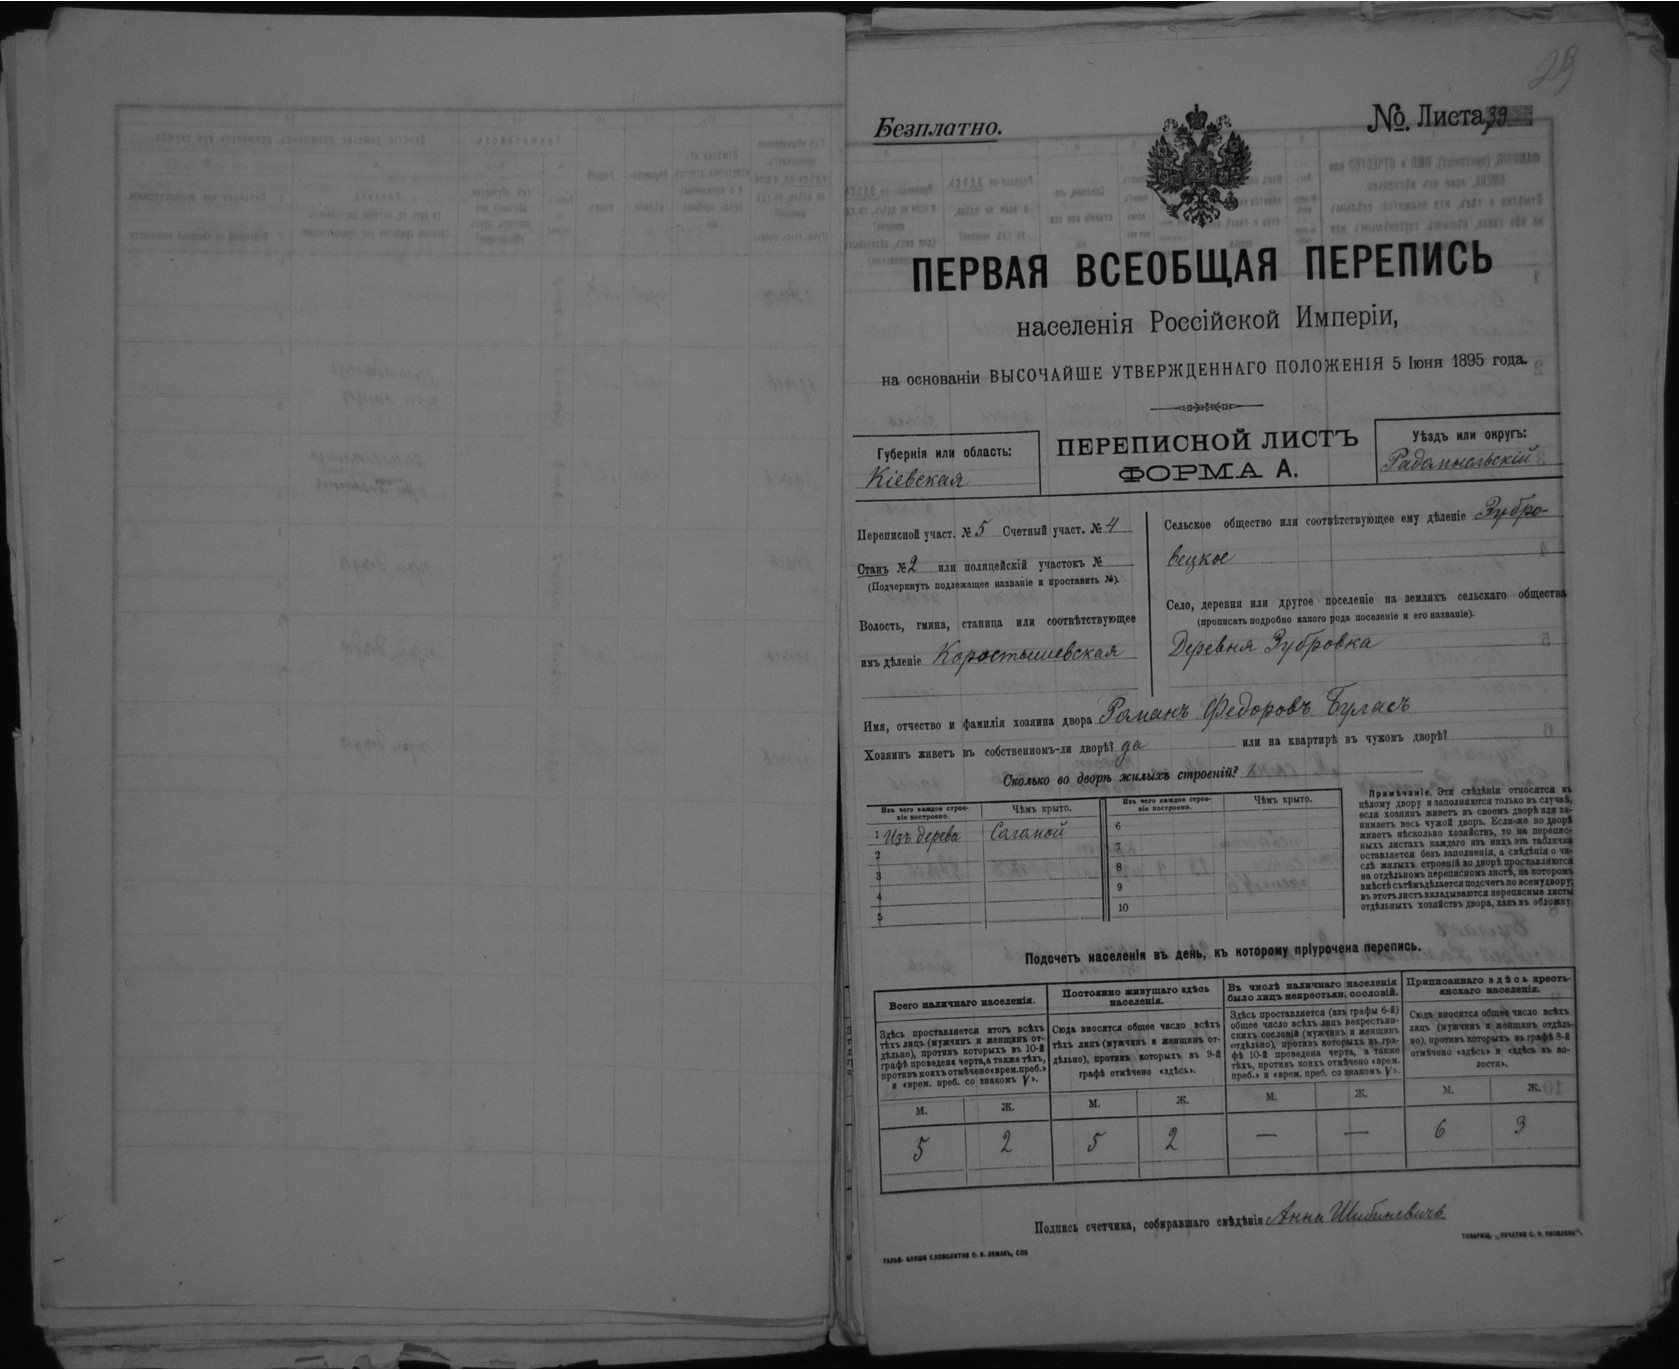 29
Безплатно.
№. Листа 39
ПЕРВАЯ ВСЕОБЩАЯ ПЕРЕПИСЬ
населенія Россійской Имперіи,
на основаніи ВЫСОЧАЙШЕ УТВЕРЖДЕННАГО ПОЛОЖЕНІЯ 5 Іюня 1895 года.
Губернія или область:
Кіевская
ПЕРЕПИСНОЙ ЛИСТЪ
ФОРМА А.
Уѣздъ или округъ:
Радомысльскій
Переписной участ. № 5 Счетный участ. № 4
Станъ № 2 или полицейскій участокъ №
(Подчеркнуть подлежащее названіе и проставить №).
Волость, гмина, станица или соотвѣтствующее
имъ дѣленіе Коростышевская
Сельское общество или соотвѣтствующее ему дѣленіе Зубро-
вецкое
Село, деревня или другое поселеніе на земляхъ сельскаго общества
(прописать подробно какого рода поселеніе и его названіе).
Деревня Зубровка
Имя, отчество и фамилія хозяина двора Романъ Федоровъ Буласъ
Хозяинъ живетъ въ собственномъ-ли дворѣ? да или на квартирѣ въ чужомъ дворѣ?
Сколько во дворѣ жилыхъ строеній? 1
Изъ чего каждое строе-
ніе построено.
Чѣмъ крыто.
1 Изъ дерева Саломой
2
3
4
5
Изъ чего каждое строе-
ніе построено.
Чѣмъ крыто.
6
7
8
9
10
Примѣчаніе. Эти свѣдѣнія относятся къ
цѣлому двору и заполняются только въ случаѣ,
если хозяинъ живетъ въ своемъ дворѣ или за-
нимаетъ весь чужой дворъ. Если-же во дворѣ
живетъ нѣсколько хозяйствъ, то на перепис-
ныхъ листахъ каждаго изъ нихъ эта табличка
оставляется безъ заполненія, а свѣдѣнія о чи-
слѣ жилыхъ строеній во дворѣ проставляются
на отдѣльномъ переписномъ листѣ, на которомъ
вмѣстѣ съ тѣмъ дѣлается подсчетъ по всему двору;
въ этотъ листъ вкладываются переписные листы
отдѣльныхъ хозяйствъ двора, какъ въ обложку.
Подсчетъ населенія въ день, къ которому пріурочена перепись.
Всего наличнаго населенія.
Здѣсь проставляется итогъ всѣхъ
тѣхъ лицъ (мужчинъ и женщинъ от-
дѣльно), противъ которыхъ въ 10-й
графѣ проведена черта, а также тѣхъ,
противъ коихъ отмѣчено «врем. преб.»
и «врем. преб. со знакомъ V».
М. Ж.
5 2
Постоянно живущаго здѣсь
населенія.
Сюда вносится общее число всѣхъ
тѣхъ лицъ (мужчинъ и женщинъ от-
дѣльно), противъ которыхъ въ 9-й
графѣ отмѣчено «здѣсь».
М. Ж.
5 2
Въ числѣ наличнаго населенія
было лицъ некрестьян. сословій.
Здѣсь проставляется (изъ графы 6-й)
общее число всѣхъ лицъ некрестьян-
скихъ сословій (мужчинъ и женщинъ
отдѣльно), противъ которыхъ въ гра-
фѣ 10-й проведена черта, а также
тѣхъ, противъ коихъ отмѣчено «врем.
преб.» и «врем. преб. со знакомъ V».
М. Ж.
— —
Приписаннаго здѣсь кресть-
янскаго населенія.
Сюда вносится общее число всѣхъ
лицъ (мужчинъ и женщинъ отдѣль-
но), противъ которыхъ въ графѣ 8-й
отмѣчено «здѣсь» и «здѣсь въ во-
лости».
М. Ж.
6 3
Подпись счетчика, собиравшаго свѣдѣнія Анна
ГАЛЬВ. КЛИШЕ СЛОВОЛИТНИ О. И. ЛЕМАНЪ, СПБ
ТОВАРИЩ. „ПЕЧАТНЯ С. П. ЯКОВЛЕВА“.